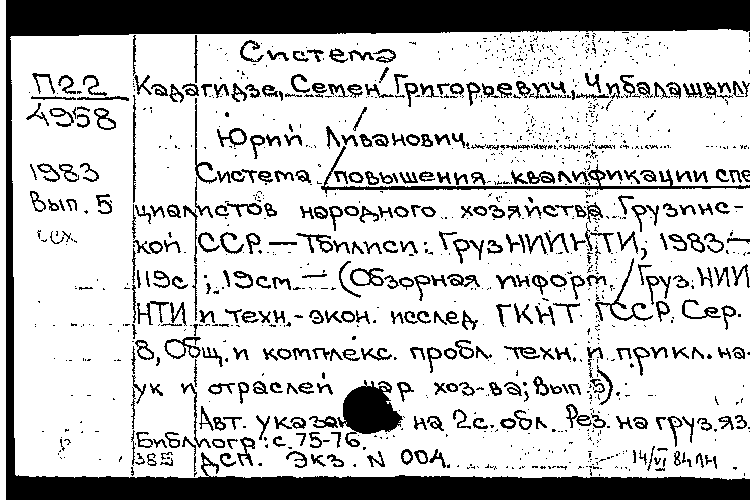 Система
П22 Кадагидзе, Семен Григорьевич, Чибалашвили
4958
Юрий Ливанович
1983 Система повышения квалификации спе
Вып. 5 циалистов народного хозяйства Грузинс-
кой ССР. — Тбилиси: ГрузНИИНТИ, 1983. —
119с.; 19см. — (Обзорная информ. / Груз.НИИ
НТИ и техн.-экон. исслед ГКНТ ГССР. Сер.
8, Общ. и комплекс. пробл. техн. и прикл. на-
ук и отраслей нар хоз-ва; Вып. 5).
Авт. указан на 2с. обл. Рез. на груз. яз.
Библиогр.: с. 75-76.
385 ДСП. Экз. N 004. 14/VI 84